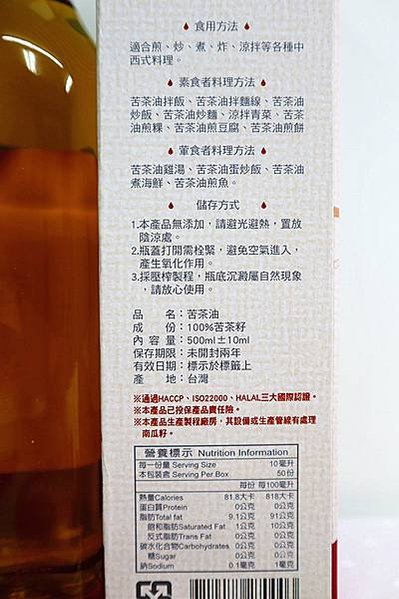 食用方法
適合煎、炒、煮、炸、涼拌等各種中
西式料理。
素食者料理方法
苦茶油拌飯、苦茶油拌麵線、苦茶油
炒飯、苦茶油炒麵、涼拌青菜、苦茶
油煎粿、苦茶油煎豆腐、苦茶油煎餅
葷食者料理方法
苦茶油雞湯、苦茶油蛋炒飯、苦茶油
煮海鮮、苦茶油煎魚。
儲存方式
1.本產品無添加，請避光避熱，置放
陰涼處。
2.瓶蓋打開需栓緊，避免空氣進入，
產生氧化作用。
3.採壓榨製程，瓶底沉澱屬自然現象
，請放心使用。
品名：苦茶油
成份：100%苦茶籽
內容量：500ml±10ml
保存期限：未開封兩年
有效日期：標示於標籤上
產地：台灣
※通過HACCP、ISO22000、HALAL三大國際認證。
※本產品已投保產品責任險。
※本產品生產製程廠房，其設備或生產管線有處理
南瓜籽。
營養標示 Nutrition Information
每一份量 Serving Size 10毫升
本包裝含 Servings Per Box 50份
每份 每100毫升
熱量Calories 81.8大卡 818大卡
蛋白質Protein 0公克 0公克
脂肪Total fat 9.1公克 91公克
飽和脂肪Saturated Fat 1公克 10公克
反式脂肪Trans Fat 0公克 0公克
碳水化合物Carbohydrates 0公克 0公克
糖Sugar 0公克 0公克
鈉Sodium 0.1毫克 1毫克